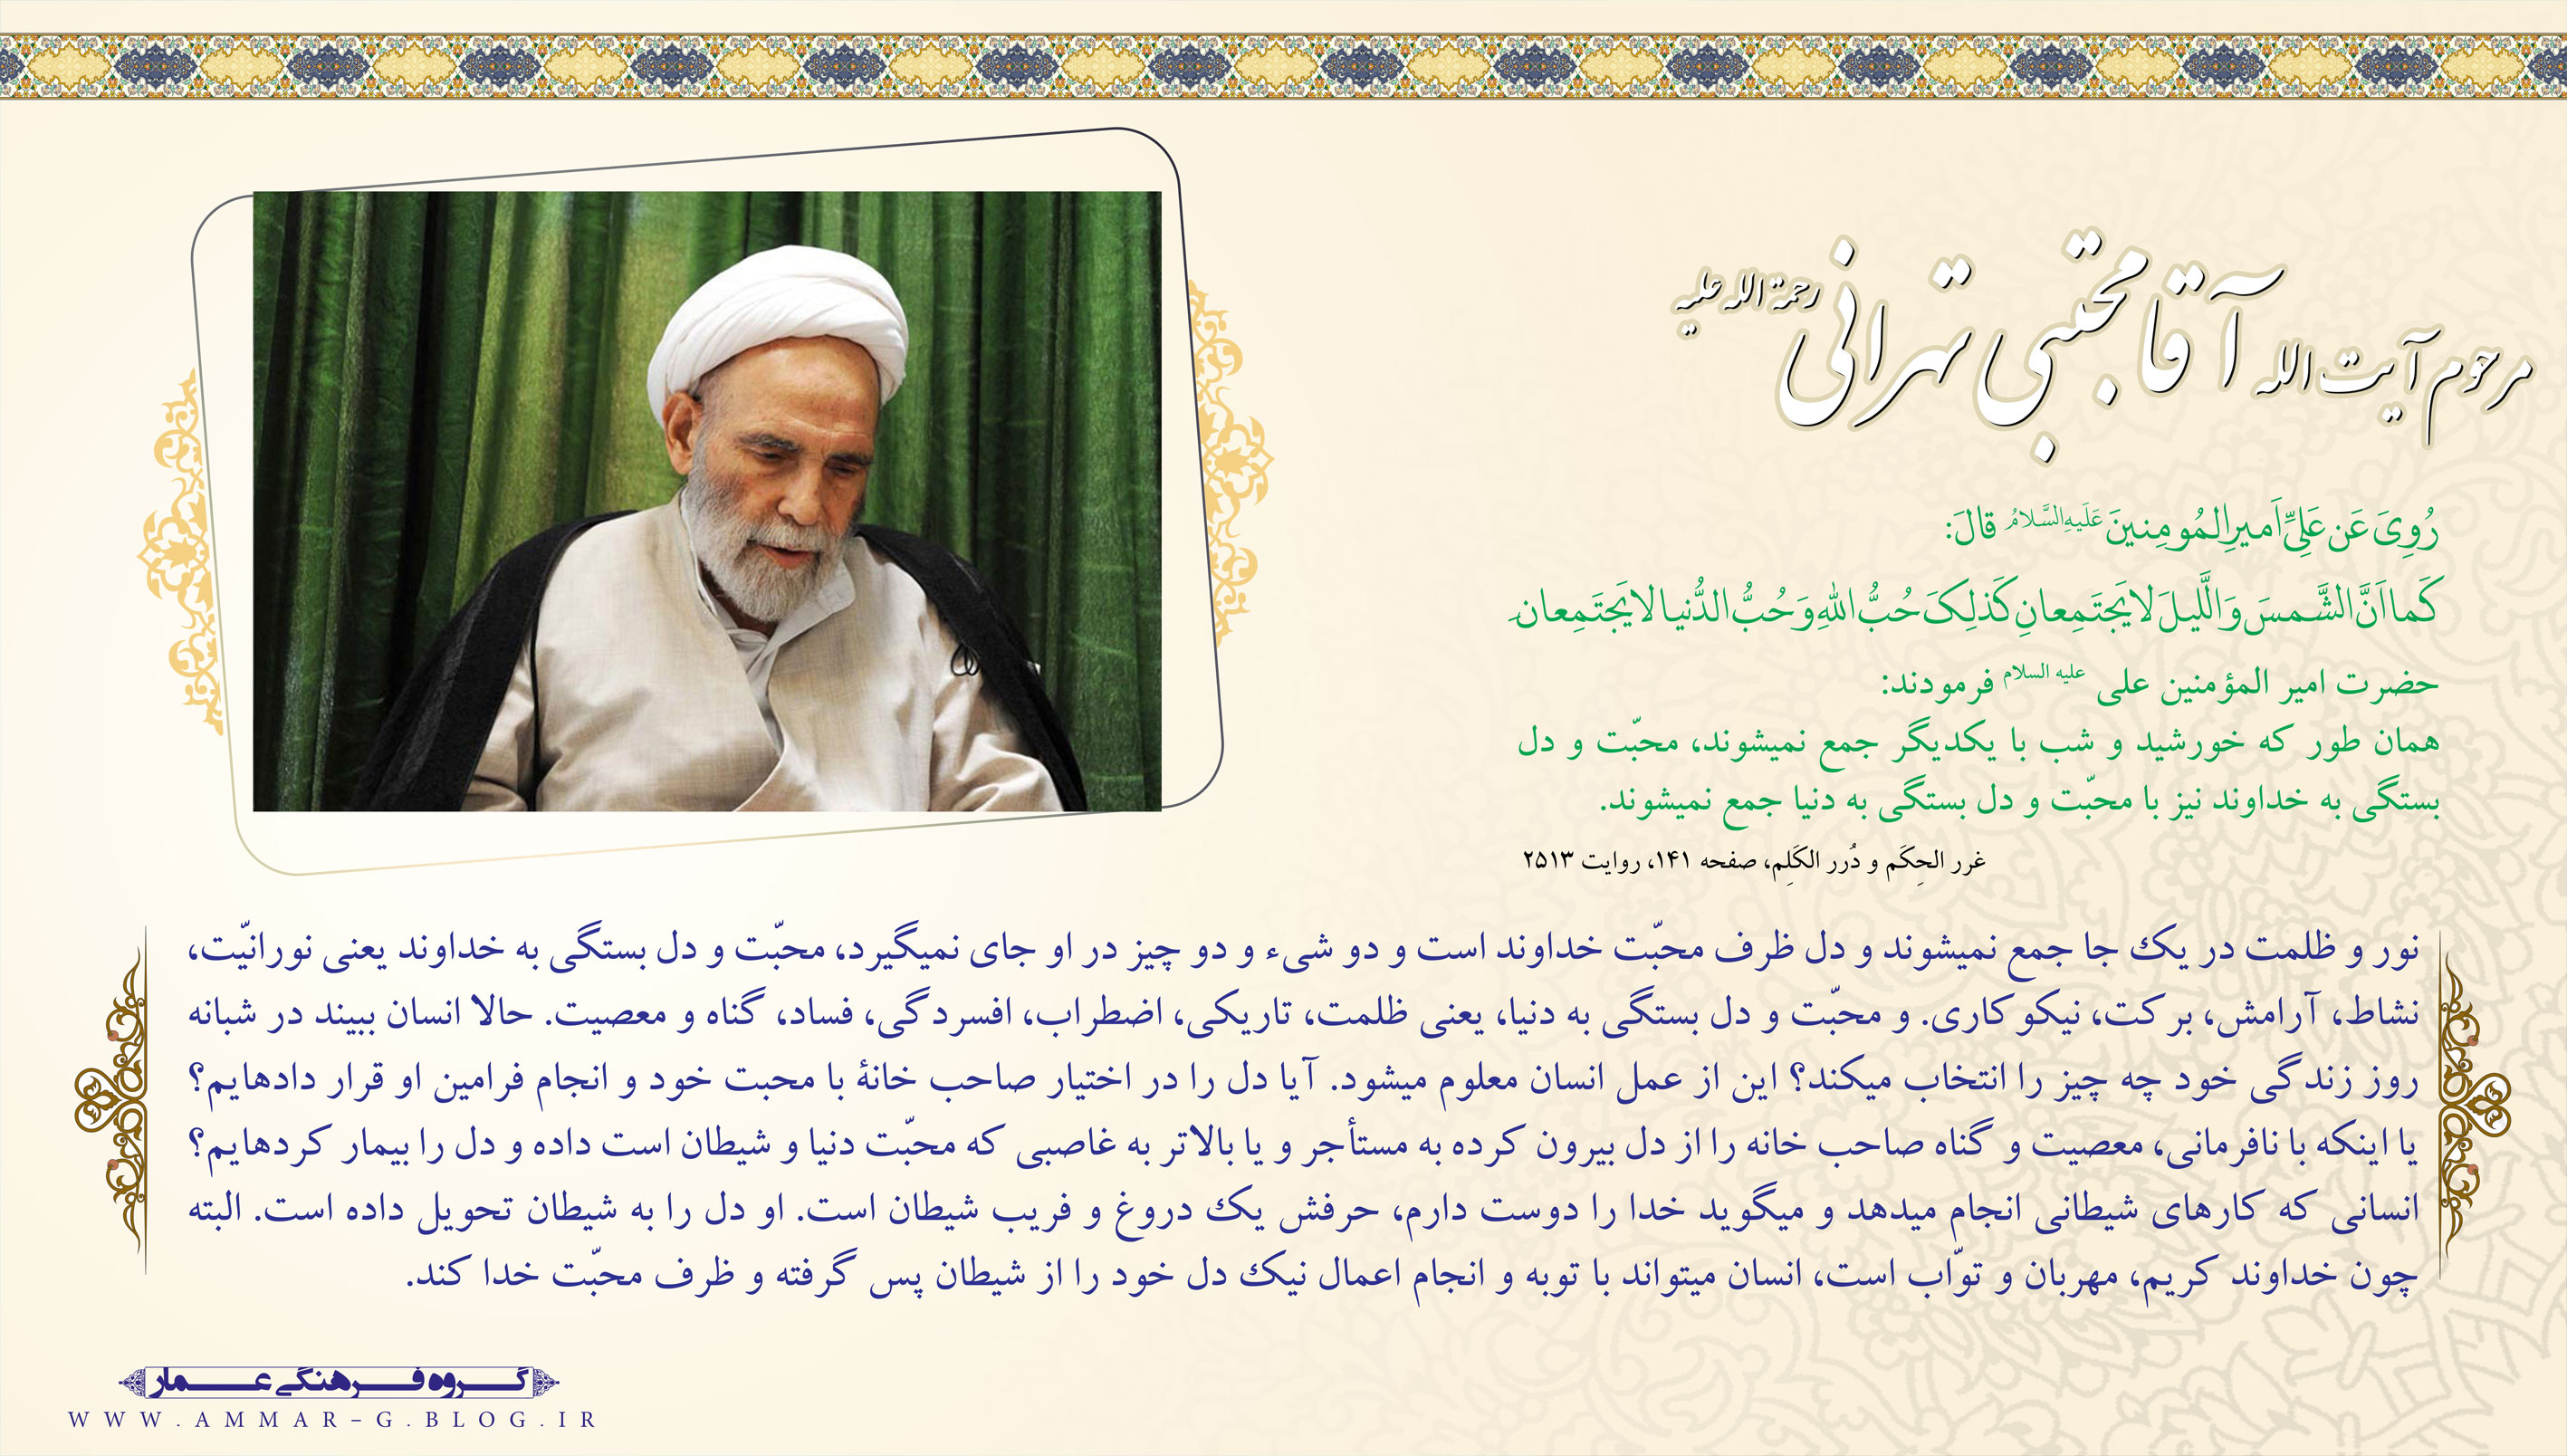 مرحوم آیت الله آقا مجتبی تهرانی رحمة الله علیه
رُوِیَ عَن عَلِیٍّ اَمیرِالمُومِنینَ عَلَیهِ‌السَّلامُ قالَ:
کَما اَنَّ الشَّمسَ وَ اللَّیلَ لا یَجتَمِعانِ کَذلِکَ حُبُّ اللهِ وَ حُبُّ الدُّنیا لا یَجتَمِعانِ
حضرت امیر المؤمنین علی علیه السلام فرمودند:
همان طور که خورشید و شب با یکدیگر جمع نمیشوند، محبّت و دل
بستگی به خداوند نیز با محبّت و دل بستگی به دنیا جمع نمیشوند.
غرر الحِکَم و دُرر الکَلِم، صفحه ۱۴۱، روایت ۲۵۱۳
نور و ظلمت در یک جا جمع نمیشوند و دل ظرف محبّت خداوند است و دو شیء و دو چیز در او جای نمیگیرد، محبّت و دل بستگی به خداوند یعنی نورانیّت،
نشاط، آرامش، برکت، نیکوکاری. و محبّت و دل بستگی به دنیا، یعنی ظلمت، تاریکی، اضطراب، افسردگی، فساد، گناه و معصیت. حالا انسان ببیند در شبانه
روز زندگی خود چه چیز را انتخاب میکند؟ این از عمل انسان معلوم میشود. آیا دل را در اختیار صاحب خانهٔ با محبت خود و انجام فرامین او قرار دادهایم؟
یا اینکه با نافرمانی، معصیت و گناه صاحب خانه را از دل بیرون کرده به مستأجر و یا بالاتر به غاصبی که محبّت دنیا و شیطان است داده و دل را بیمار کردهایم؟
انسانی که کارهای شیطانی انجام میدهد و میگوید خدا را دوست دارم، حرفش یک دروغ و فریب شیطان است. او دل را به شیطان تحویل داده است. البته
چون خداوند کریم، مهربان و توّاب است، انسان میتواند با توبه و انجام اعمال نیک دل خود را از شیطان پس گرفته و ظرف محبّت خدا کند.
گروه فرهنگی عمار
WWW.AMMAR-G.BLOG.IR